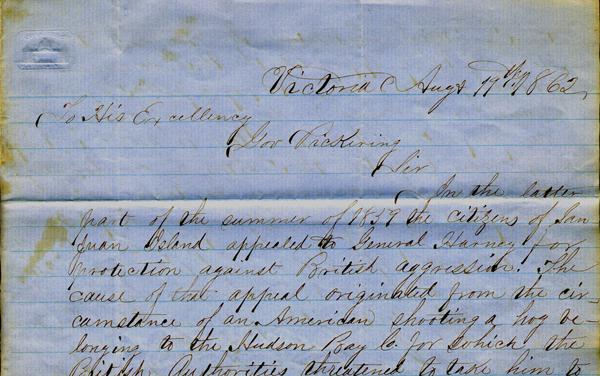 Victoria Augt 19th 1862,
To His Excellency
Gov Pickiring
Sir
In the latter
part of the summer of 1859 the citizens of San
Juan Island appealed to General Harney for
protection against British aggression. The
cause of that appeal originated from the cir-
cumstance of an American shooting a hog be-
longing to the Hudson Bay C. for which the
British Authorities threatened to take him to